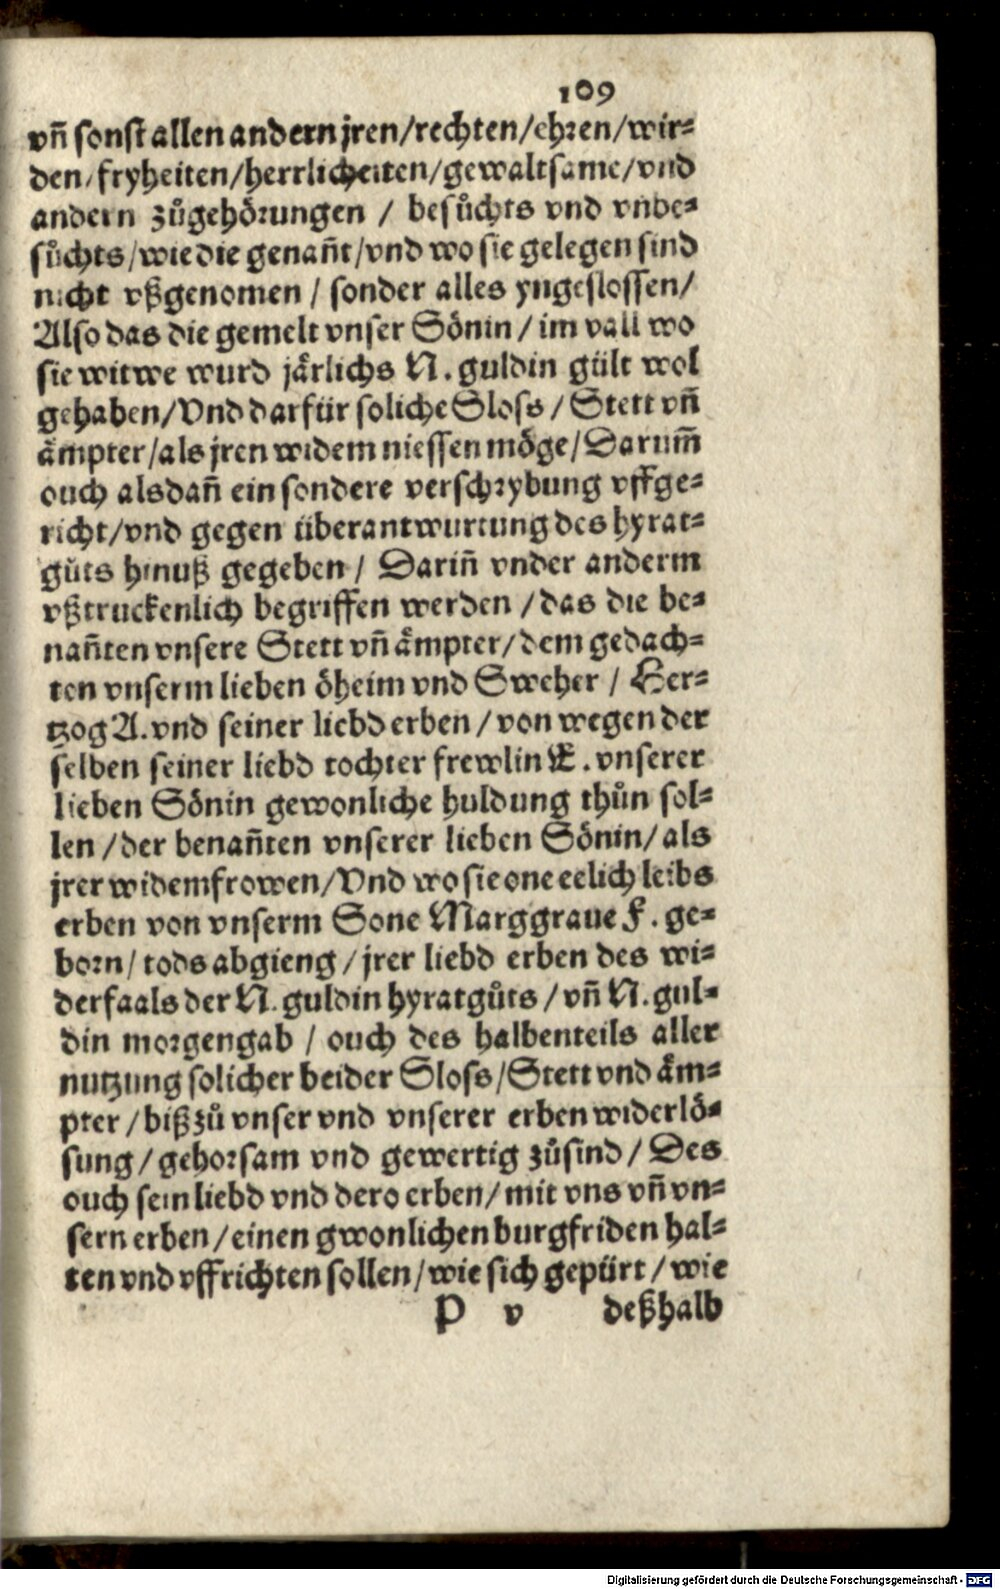 109
vñ sonst allen andern jren/rechten/ehren/wir⸗
den/fryheiten/herrlicheiten/gewaltsame/vnd
andern zůgehörungen / besůchts vnd vnbe⸗
sůchts/wie die genañt/vnd wo sie gelegen sind
nicht vßgenomen / sonder alles yngeslossen/
Also das die gemelt vnser Sönin / im vall wo
sie witwe wurd järlichs N. guldin gült wol
gehaben/Vnd darfür soliche Sloss / Stett vñ
ämpter/als jren widem niessen möge/Darum̃
ouch alsdañ ein sondere verschrybung vffge⸗
richt/vnd gegen überantwurtung des hyrat⸗
gůts hinuß gegeben / Dariñ vnder anderm
vßtruckenlich begriffen werden / das die be⸗
nañten vnsere Stett vñ ämpter/dem gedach⸗
ten vnserm lieben öheim vnd Sweher / Her⸗
tzog A. vnd seiner liebd erben / von wegen der
selben seiner liebd tochter frewlin E. vnserer
lieben Sönin gewonliche huldung thůn sol⸗
len / der benañten vnserer lieben Sönin/ als
jrer widemfrowen/Vnd wo sie one eelich leibs
erben von vnserm Sone Marggraue F. ge⸗
born/ tods abgieng / jrer liebd erben des wi⸗
derfaals der N. guldin hyratgůts / vñ N. gul⸗
din morgengab / ouch des halbenteils aller
nutzung solicher beider Sloss/Stett vnd äm⸗
pter / biß zů vnser vnd vnserer erben widerlö⸗
sung / gehorsam vnd gewertig zůsind / Des
ouch sein liebd vnd dero erben/ mit vns vñ vn⸗
sern erben / einen gwonlichen burgfriden hal⸗
ten vnd vffrichten sollen/wie sich gepürt / wie
P v deßhalb
Digitalisierung gefördert durch die Deutsche Forschungsgemeinschaft - DFG